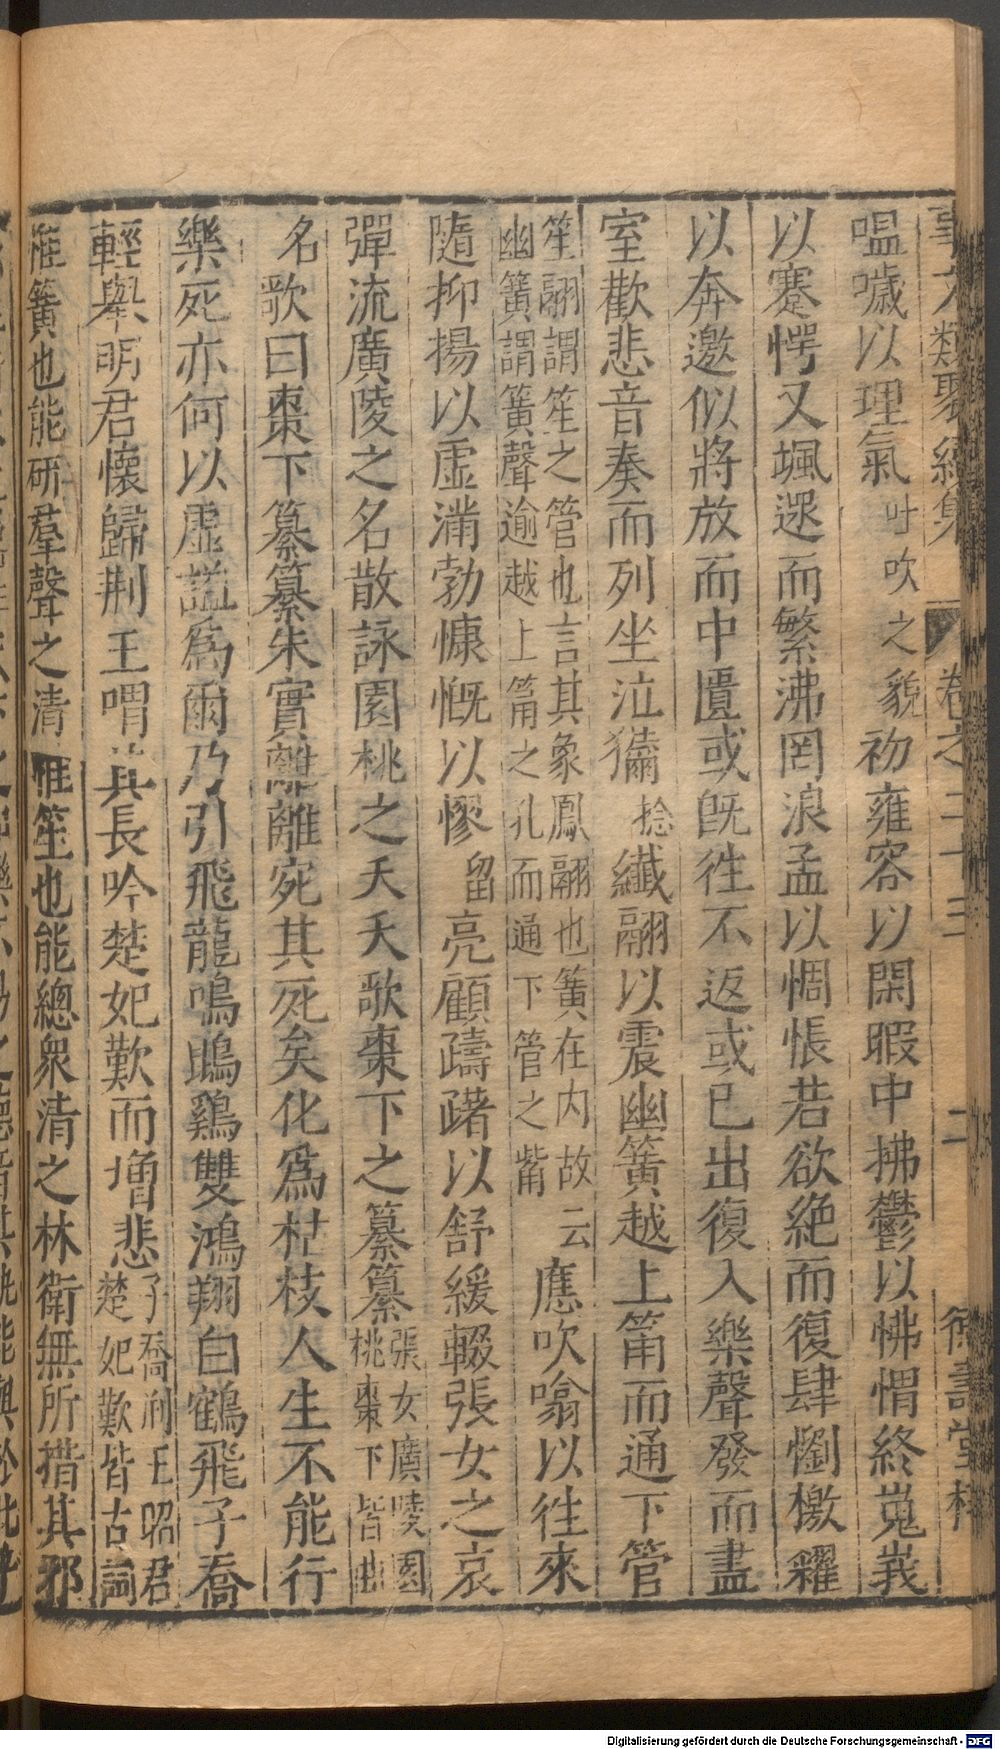 事文類聚續集 卷之二十三 二 德壽堂梓
嗢噦以理氣吐吹之貌初雍容以閑暇中拂鬱以怫愲終嵬峩
以蹇愕又颯遝而繁沸罔浪孟以惆悵若欲絶而復肆懰檄糴
以奔邀似將放而中匱或旣徃不返或已出復入樂聲發而盡
室歡悲音奏而列坐泣㩶捻纖翮以震幽簧越上筩而通下管
笙翮謂笙之管也言其象鳳翮也簧在内故云
幽簧謂簧聲逾越上筩之孔而通下管之觜
應吹噏以徃來
隨抑揚以虛滿勃慷慨以憀留亮顧躊躇以舒緩輟張女之哀
彈流廣陵之名散詠園桃之夭夭歌棗下之纂纂
張女廣陵園
桃棗下皆曲
名歌曰棗下纂纂朱實離離宛其死矣化爲枯枝人生不能行
樂死亦何以虛謚爲爾乃引飛龍鳴鵾鷄雙鴻翔白鶴飛子喬
輕舉明君懷歸荆王喟其長吟楚妃歎而增悲
子喬荆王昭君
楚妃歎皆古詞
惟簧也能研羣聲之清惟笙也能總衆清之林衛無所措其邪
Digitalisierung gefördert durch die Deutsche Forschungsgemeinschaft - DFG